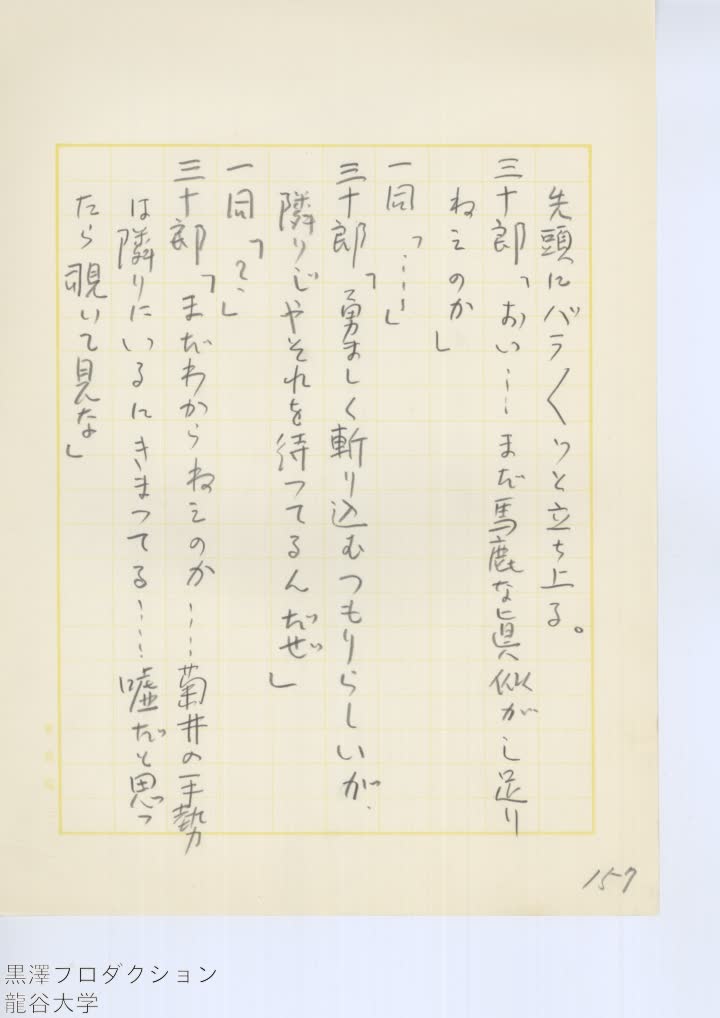 先頭にバラ〱ッと立ち上る。
三十郎「おい……まだ馬鹿な眞似がし足り
ねえのか」
一同「……」
三十郎「勇ましく斬り込むつもりらしいが、
隣りじやそれを待つてるんだぜ」
一同「？」
三十郎「まだわからねえのか……菊井の手勢
は隣りにいるにきまつてる……嘘だと思つ
たら覗いて見な」
157
黒澤プロダクション
龍谷大学